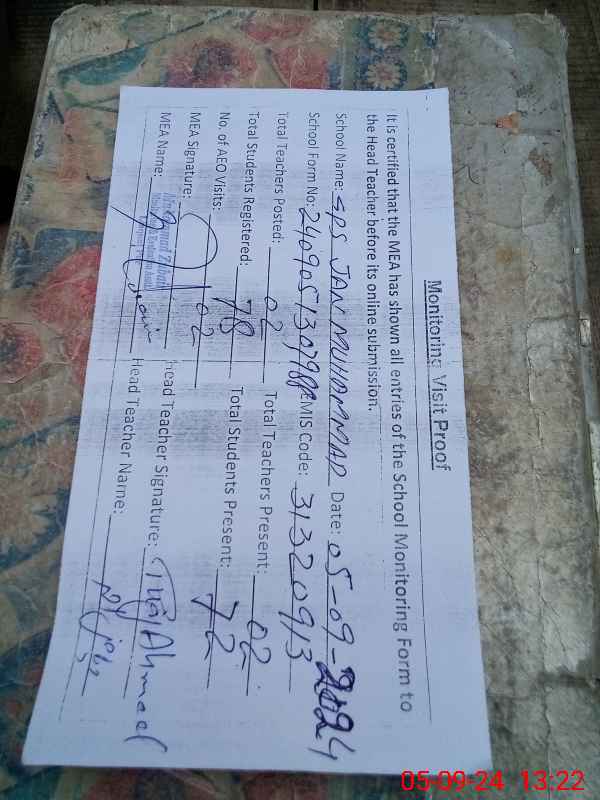 Monitoring Visit Proof
It is certified that the MEA has shown all entries of the School Monitoring Form to
the Head Teacher before its online submission.
School Name: GPS JAN MUHAMMAD Date: 05-09-2024
School Form No: EMIS Code: 31320913
Total Teachers Posted: 02 Total Teachers Present: 02
Total Students Registered: 78 Total Students Present: 72
No. of AEO Visits: 02
MEA Signature: Head Teacher Signature: Ahmad
MEA Name: Head Teacher Name:
05-09-24 13:22